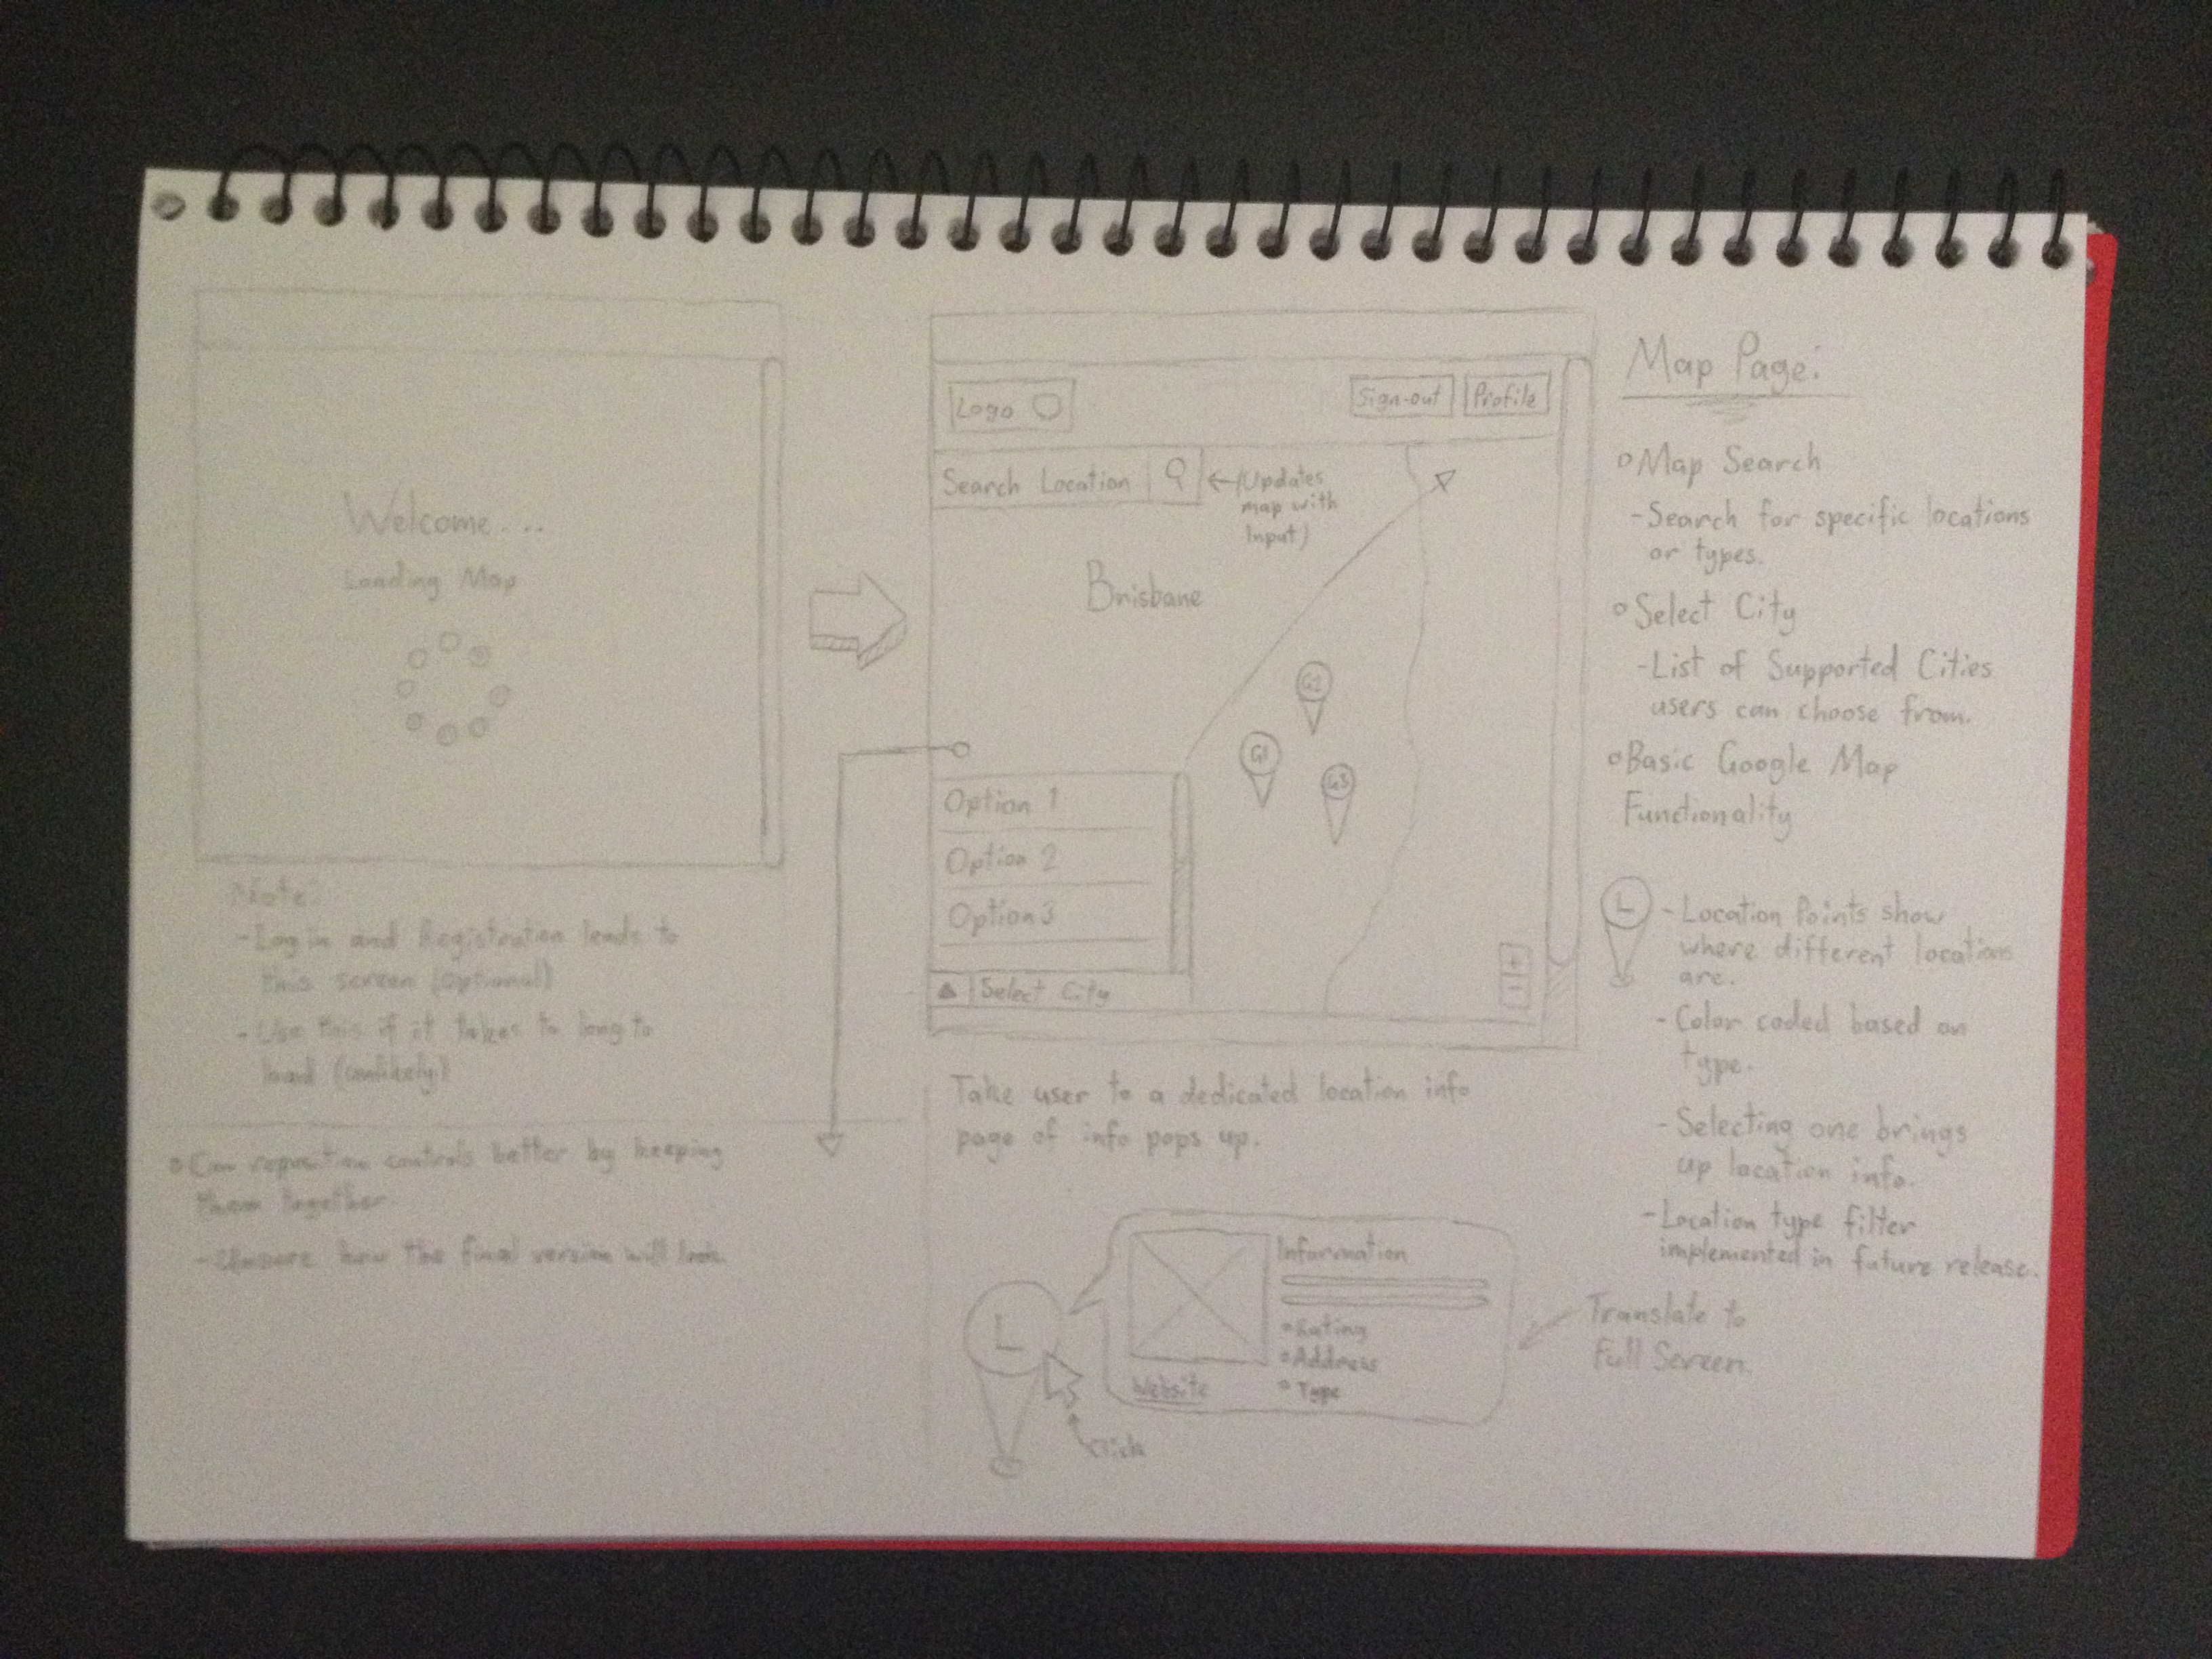 Welcome....
Loading Map
Note:
-Log in and Registration leads to
this screen (optional)
-Use this if it takes to long to
load (unlikely)
Can reposition controls better by keeping
them together.
how the final version will look
Logo
Sign-out
Profile
Search Location
(Updates
map with
Input)
Brisbane
G2
G1
G3
Option 1
Option 2
Option 3
Select City
+
-
Take user to a dedicated location info
page of info pops up.
L
Click
Information
Rating
Address
Type
Website
Translate to
Full Screen.
Map Page:
Map Search
-Search for specific locations
or types.
Select City
-List of Supported Cities
users can choose from.
Basic Google Map
Functionality
L
-Location Points show
where different locations
are.
-Color coded based on
type.
-Selecting one brings
up location info.
-Location type filter
implemented in future release.